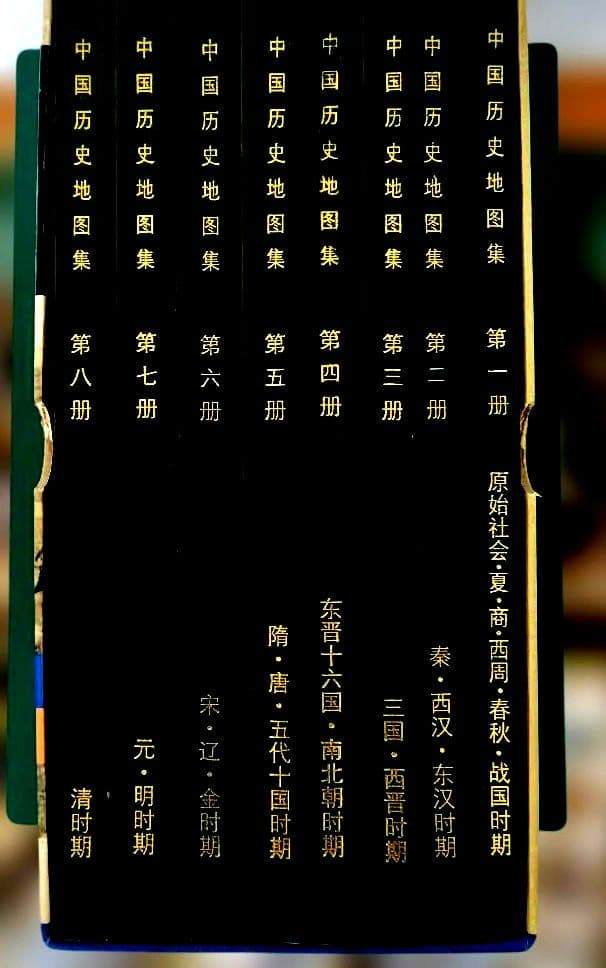 中国历史地图集 第一册 原始社会·夏·商·西周·春秋·战国时期
中国历史地图集 第二册 秦·西汉·东汉时期
中国历史地图集 第三册 三国·西晋时期
中国历史地图集 第四册 东晋十六国·南北朝时期
中国历史地图集 第五册 隋·唐·五代十国时期
中国历史地图集 第六册 宋·辽·金时期
中国历史地图集 第七册 元·明时期
中国历史地图集 第八册 清时期